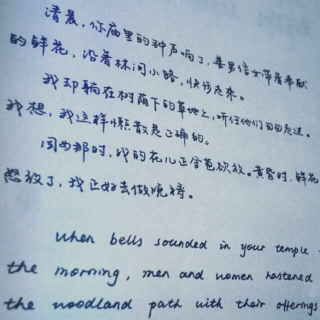 清晨，你庙里的钟声响了，善男信女带着奉献
的鲜花，沿着林间小路，快步走来。
我却躺在树荫下的草地上，听任他们匆匆走过。
我想，我这样懒散是正确的。
因为那时，我的花儿正含苞欲放。黄昏时，鲜花
怒放了，我正好去做晚祷。
when bells sounded in your temple
the morning, men and women hastened
the woodland path with their offerings